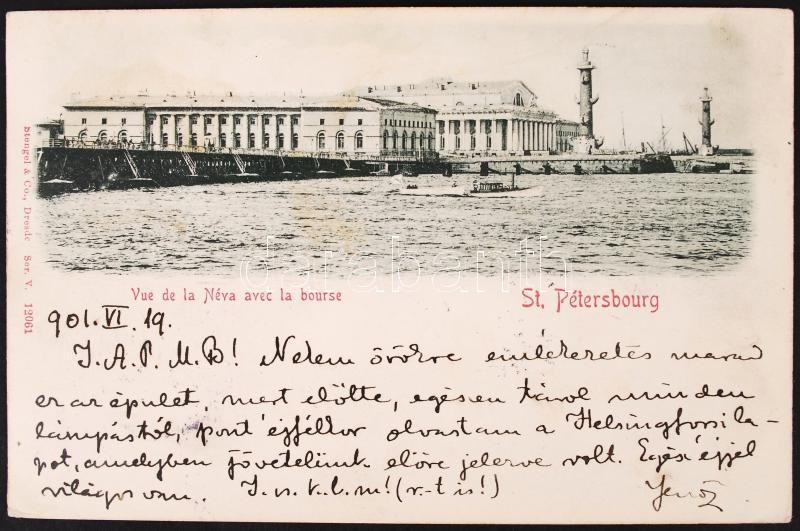 Vue de la Néva avec la bourse
St. Pétersbourg
Stengel & Co., Dresde Ser. V. 12061
darabanth
901. VI. 19.
I. A. P. M. B! Nekem örökre emlékezetes marad
ez az épület, mert előtte, egészen távol minden
lámpástól, pont éjfélkor olvastam a Helsingforsi la-
pot, amelyben jövetelünk előre jelezve volt. Egész éjjel
világos van. I. s. k. l. m! (v.-t is!) Jenő